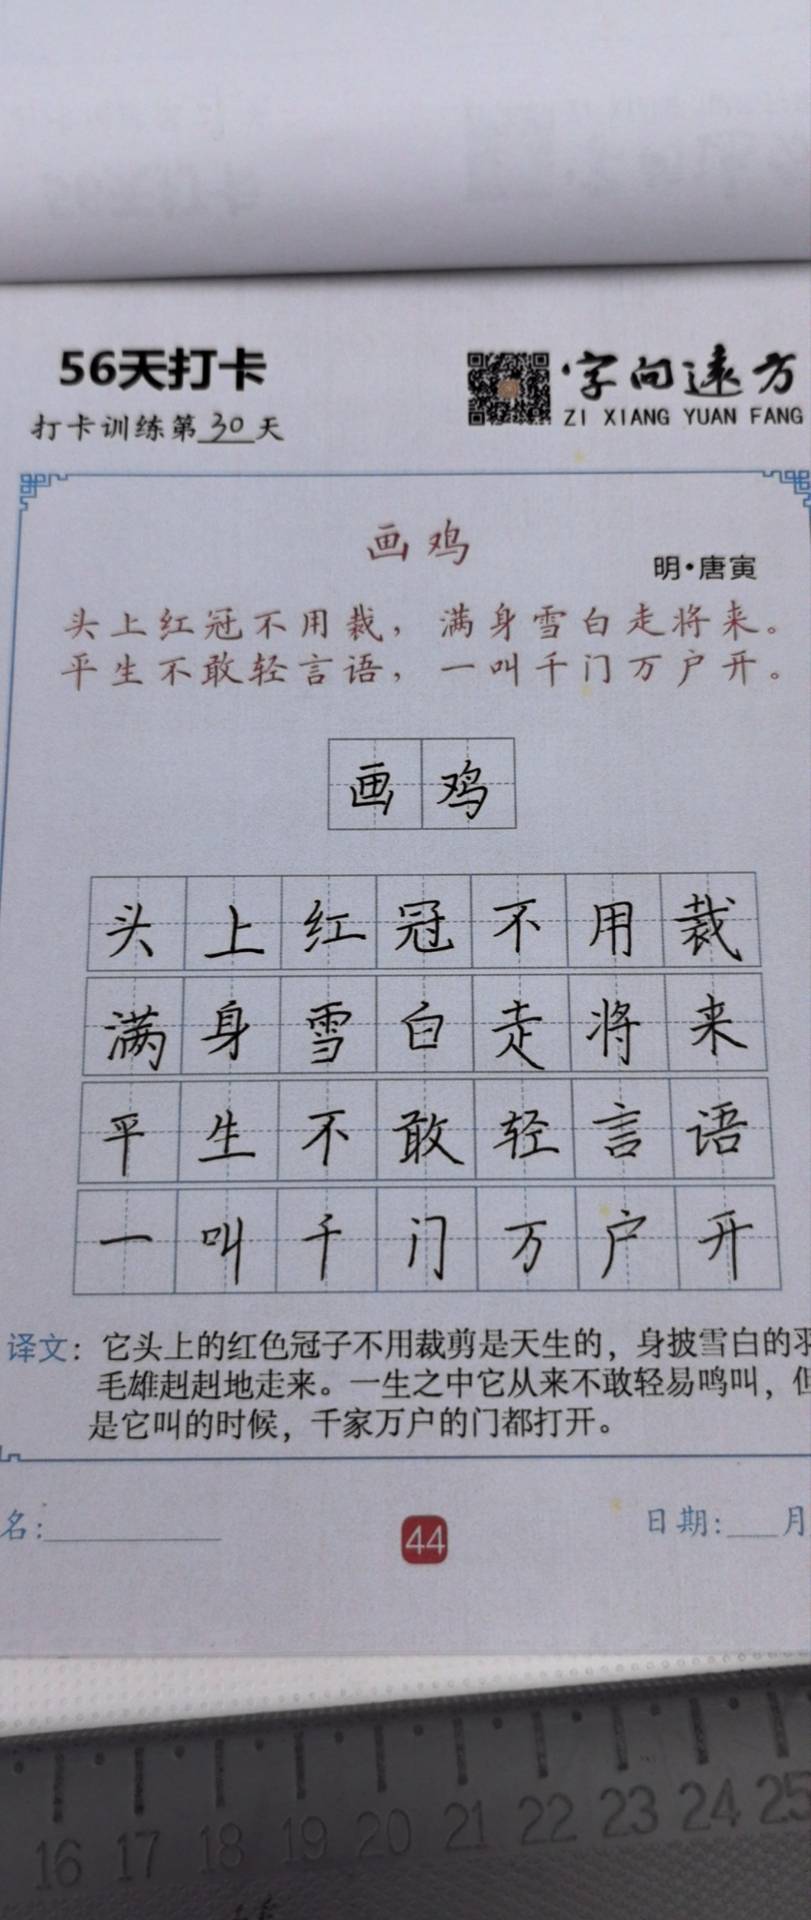 56天打卡
打卡训练第30天
字向远方
ZI XIANG YUAN FANG
画鸡
明·唐寅
头上红冠不用裁，满身雪白走将来。
平生不敢轻言语，一叫千门万户开。
画鸡
头上红冠不用裁
满身雪白走将来
平生不敢轻言语
一叫千门万户开
译文：它头上的红色冠子不用裁剪是天生的，身披雪白的羽
毛雄赳赳地走来。一生之中它从来不敢轻易鸣叫，但
是它叫的时候，千家万户的门都打开。
名：
44
日期： 月
16 17 18 19 20 21 22 23 24 25